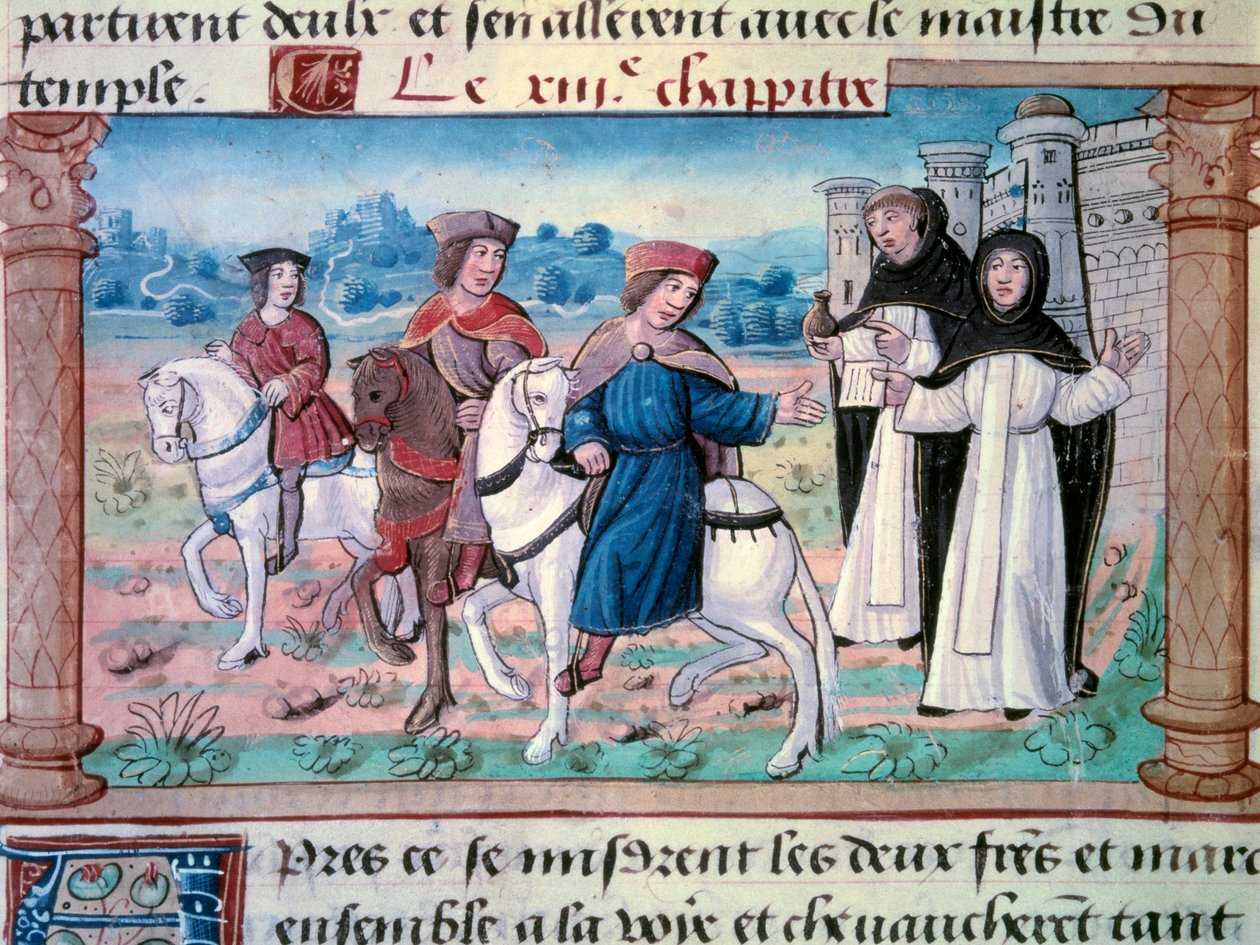 partirent deulx et sen allerent avec le maistre du
temple. Le xiij.e chappitre
Pres ce se misdrent les deux frẽs et marc
ensemble a la voye et chevaucherẽt tant